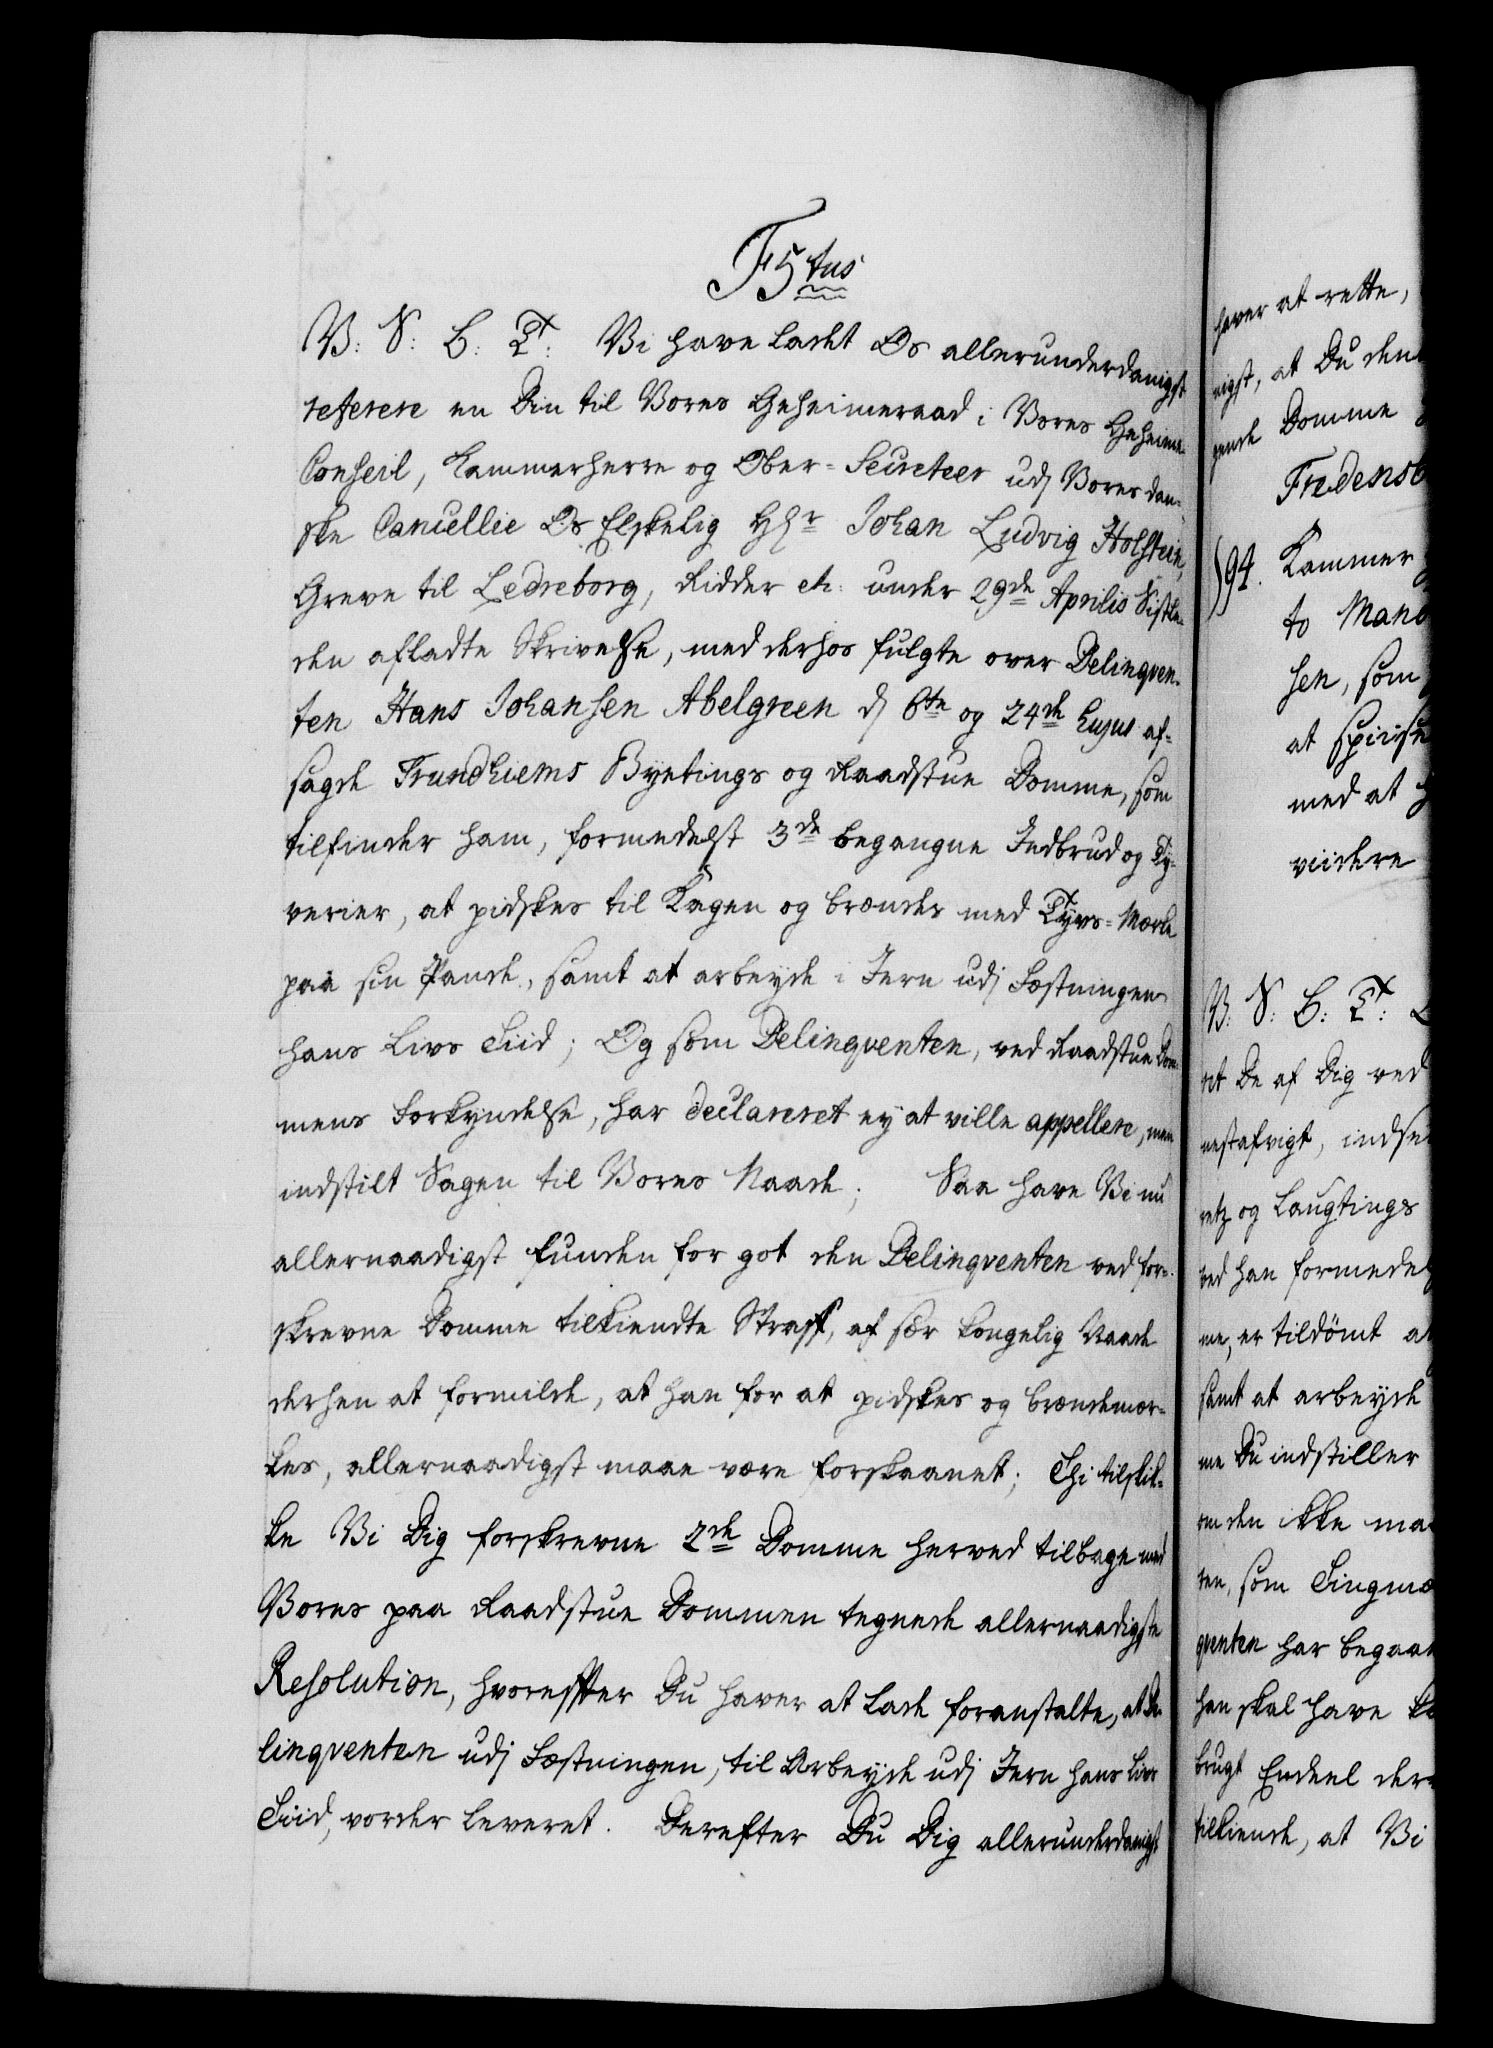 F5tus
V: S: G: T: Vi have ladet Os allerunderdanigst
referere en Din til Vores Geheimeraad i Vores Geheime
Conseil, Kammerherre og Ober-Secreteer udj Vores dan-
ske Cancellie Os Elskelig Hr Johan Ludvig Holstein,
Greve til Ledreborg, Ridder etc: under 29de Aprilis Sistle-
den afladte Skrivelse, med derhos fulgte over Delinqven-
ten Hans Johansen Abelgreen d 6te og 24de hujus af-
sagde Trundhiems Byetings og Raadstue Domme, som
tilfinder ham, formedelst 3de begangne Indbrud og Ty-
verier, at pidskes til Kagen og brændes med Tyvs-Mærke
paa sin Pande, samt at arbeyde i Jern udj Fæstningen
hans Livs Tiid; Og som Delinqventen, ved Raadstue Dom-
mens Forkyndelse, har declareret ey at ville appellere, men
indstilt Sagen til Vores Naade; Saa have Vi nu
allernaadigst funden for got den Delinqventen ved for-
skrevne Domme tilkiendte Straff, af sær kongelig Naade
derhen at formilde, at han for at pidskes og brændemær-
kes, allernaadigst maae være forskaanet; Thi tilskik-
ke Vi Dig forskrevne 2de Domme herved tilbage med
Vores paa Raadstue Dommen tegnede allernaadigste
Resolution, hvorefter Du haver at lade foranstalte, at De-
linqventen udj Fæstningen, til Arbeyde udj Jern hans Livs
Tiid, vorder leveret. Derefter Du Dig allerunderdanigst
haver at rette,
nigst, at Du den
gende Domme
Fredensb
94. Kammer
to Mand
sen, som
at spiise
med at
viidere
V: S: G: T:
et De af Dig ved
nestafvigt, indse
retz og Laugtings
ved han formedels
me, er tildömt at
samt at arbeyde
me Du indstiller
om den ikke ma
ten, som Tingmæ
qventen har begaa
han skal have
brugt Endeel der
tilkiende, at Vi